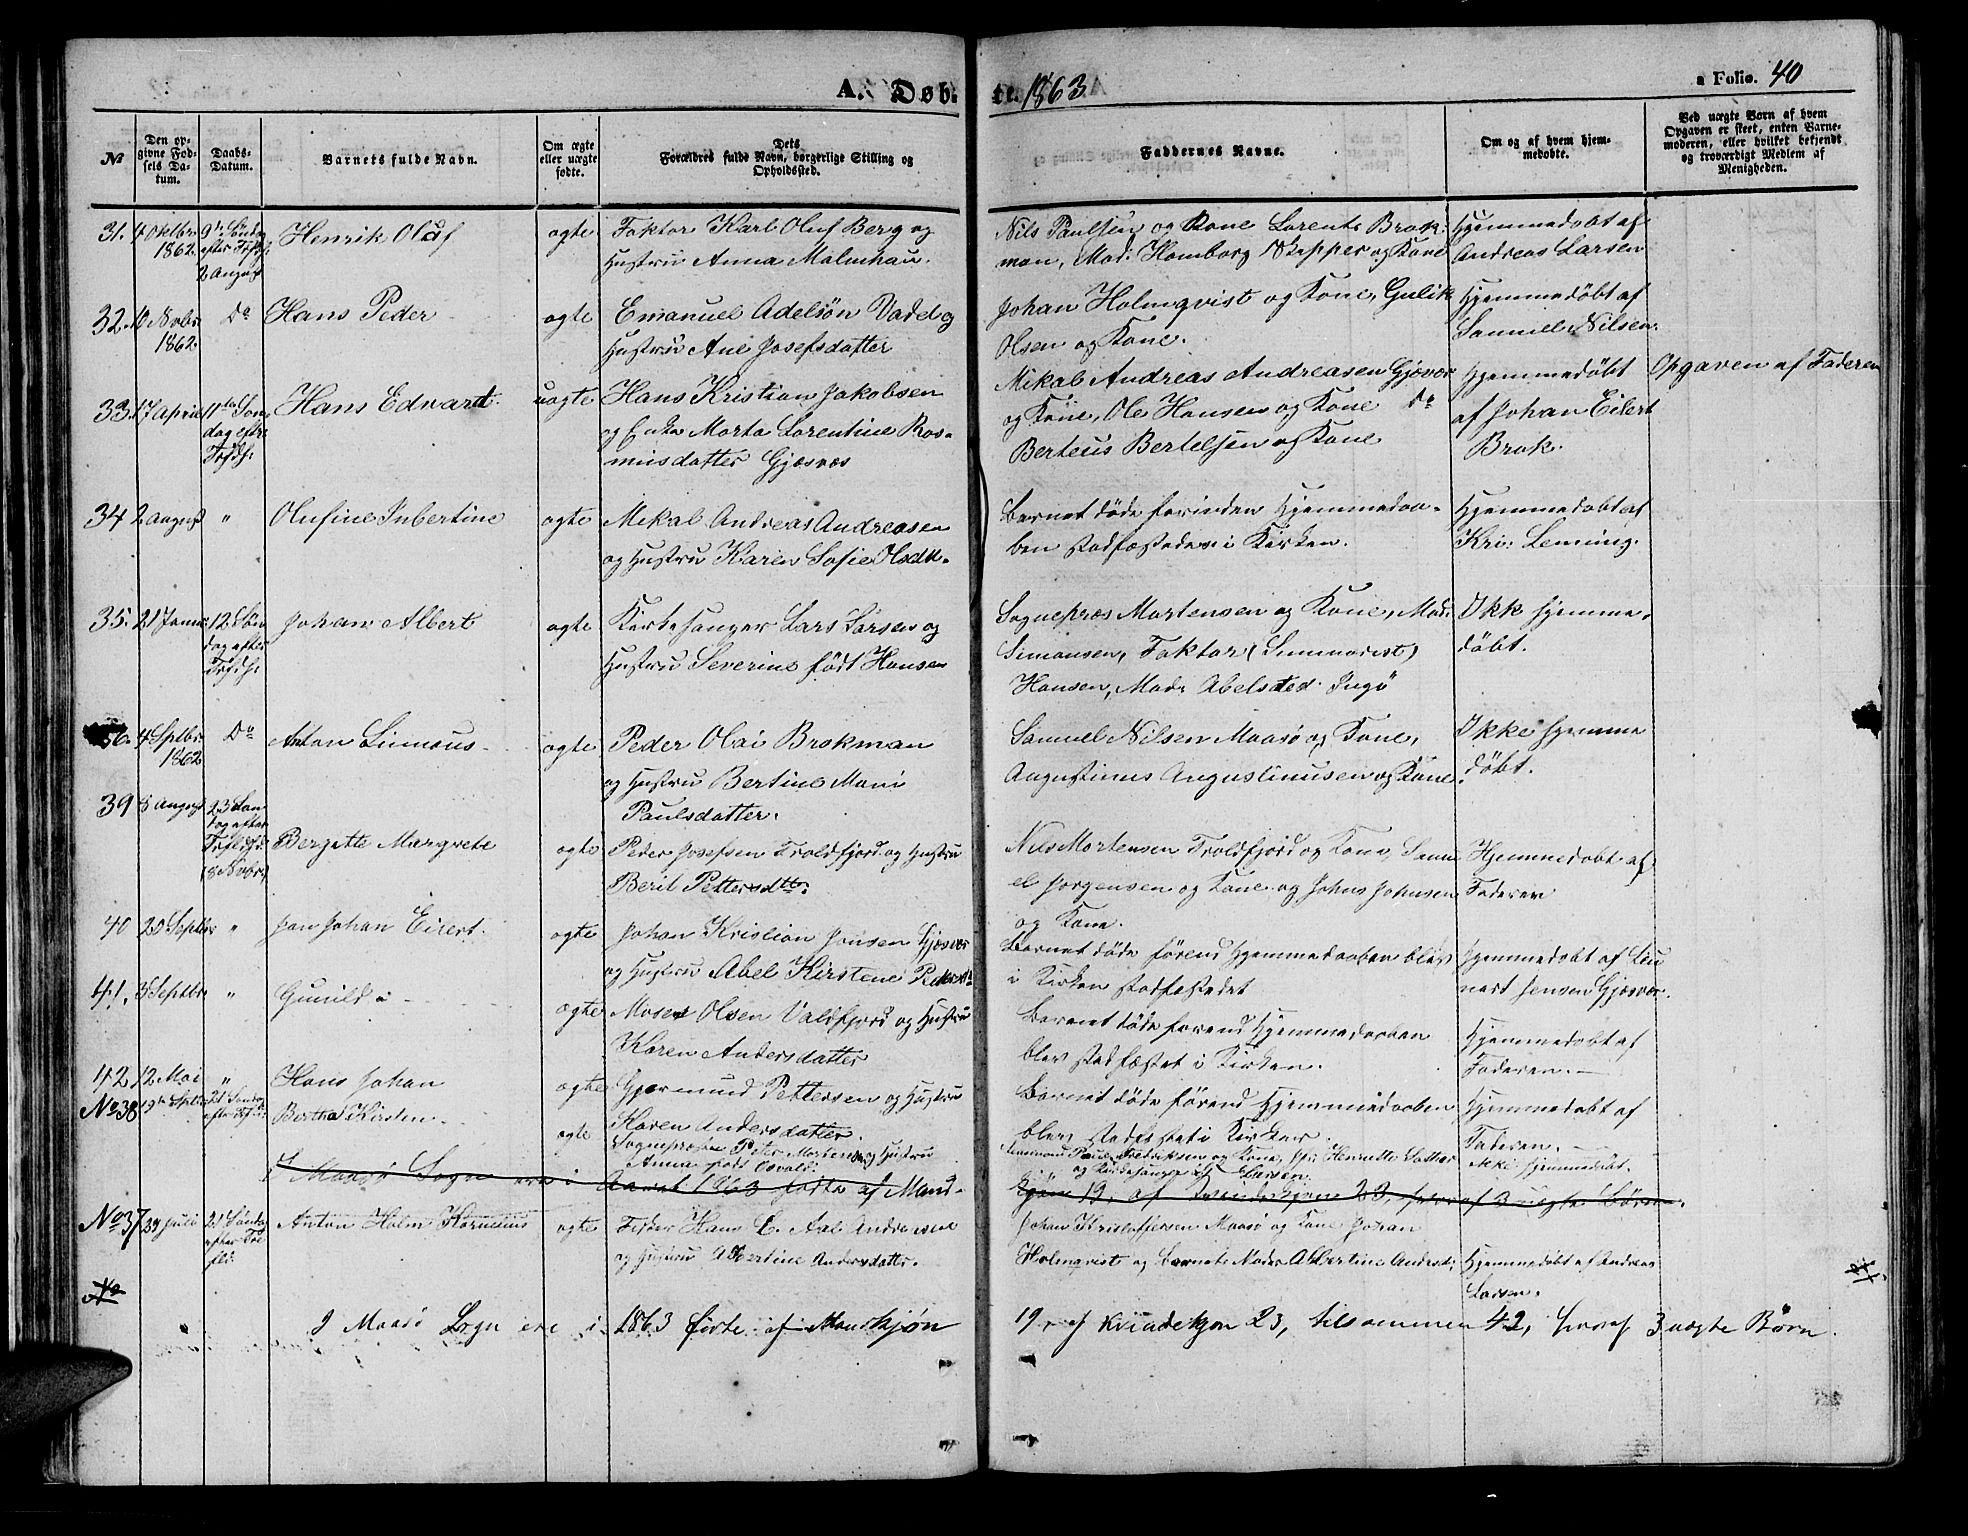 A. Døb-
te. 1863
a Folio. 40
No
Den op-
givne Fød-
sels Da-
tum.
Daabs-
Datum.
Barnets fulde Navn.
Om ægte
eller uægte
fødte.
Dets
Forældres fulde Navn, borgerlige Stilling og
Opholdssted.
Faddernes Navne.
Om og af hvem hjem-
medøbte.
Ved uægte Børn af hvem
Opgaven er skeet, enten Barne-
moderen, eller hvilket betjendt
og troværdigt Medlem af
Menigheden.
31. 4 Oktbr
1862
9de Sønda
efter Trfdh:
2 August
Henrik Oluf
ægte
Faktor Karl Oluf Berg og
Hustru Anna Malmhau.
Nils Paulsen og Kone Lorents Brok-
man, Mad: Homborg Skipper og Kone
Hjemmedøbt af
Andreas Larsen
32. Novbr
1862.
Do
Hans Peder
ægte
Emanuel Adelsøn Vadel og
Hustru Ane Josefsdatter
Johan Holmqvist og Kone, Gulik
Olsen og Kone.
Hjemmedøbt af
Samuel Nilsen.
33. 17 April
11te Søn-
dag efter
Trfdh:
Hans Edvardt
uægte
Hans Kristian Jakobsen
og Enke Marta Lorentine Ras-
musdatter Gjæsvær
Mikal Andreas Andreasen Gjæsvær
og Kone, Ole Hansen og Kone Do
Berteus Bertelsen og Kone
Hjemmedøbt
af Johan Eilert
Brok.
Opgaven af Faderen
34 2 August
"
Olufine Inbertine
ægte
Mikal Andreas Andreasen
og Hustru Karen Sofie Olsdtr.
Barnet døde forinden Hjemmedaa-
ben stadfæstedes i Kirken.
Hjemmedøbt af
Kri: Leming.
35. 21 Janua
12 Søn
dag efter
Trfdh:
Johan Albert
ægte
Kirkesanger Lars Larsen og
Hustru Severine født Hansen
Sognepræs Mortensen og Kone, Mad:
Simonsen, Faktor (Seminarist)
Hansen, Mad: Abelsted Ingø
Ikk hjemme-
døbt.
36. 4 Septbr
1862
Do
Anton Linnaus
ægte
Peder Olai Brokman
og Hustru Bertine Mari
Paulsdatter.
Samuel Nilsen Maasø og Kone,
Augustinus Augustinusen og Kone.
Ikke hjemme
døbt.
39 8 August
23 Søn
dag efter
Trfdh:
(8 Novbr)
Bergette Margrete
ægte
Peder Josefsen Troldfjord og Hustru
Berit Pettersdtr.
Nils Mortensen Troldfjord og Kone, Samu
el Jørgensen og Kone og Johns Johnsen
og Kone.
Hjemmedøbt af
Faderen
40 20 Septbr
"
Jan Johan Eilert.
ægte
Johan Kristian Jonsen Gjæsvær
og Hustru Abel Kirstene Pedersdtr
Barnet døde førend Hjemmedaaben blev
i Kirken stadfæstedet
Hjemmedøbt af Lin
nart Jensen Gjæsvær.
41. 3 Septbr
"
Gunild a
ægte
Moses Olsen Valdfjord og Hustru
Karen Andersdatter
Barnet døde førend Hjemmedaaben
blev stadfæstet i Kirken.
Hjemmedøbt af
Faderen.
42 12 Mai
"
Hans Johan
ægte
Gjermund Pettersen og Hustru
Karen Andersdatter.
Barnet døde førend Hjemmedaaben
blev stadfæstet i Kirken.
Hjemmedøbt af
Faderen.
No 38 19de Septbr
21 Sønda
efter Trfdh:
Bertha Kirsten
ægte
Sognepræsten Peter Mortensen og Hustru
Anna født Osvald.
Fredriksen og Kone, Henriette
og Kirkesanger Larsen.
ikke hjemmedøbt.
I Maasø Sogn ere i Aaret 1863 fødte af Mand-
kjøn 19, af Qvindekjøn 23, hvoraf 3 uægte Børn.
No 37 24 Juli
21 Sønda
efter Tre
fh:
Anton Holm Kornelius
ægte
Fisker Hans E. Axl Andreasen
og Hustru Albertine Andersdatter.
Johan Kristoffersen Maasø og Kone Johan
Holmqvist og Barnets Moder Albertine Andersd:
Hjemmedøbt af Andreas
Larsen.
I Maasø Sogn ere i 1863 fødte af Mandkjøn
19, af Kvindekjøn 23, tilsammen 42, hvoraf 3 uægte Børn.